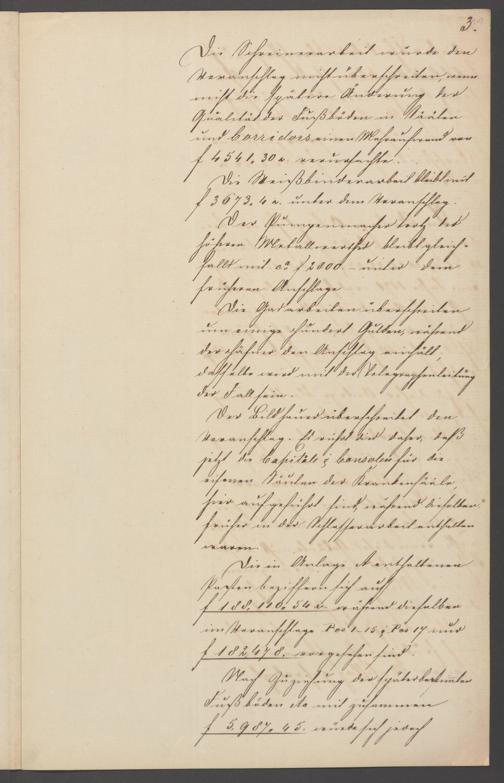 3.
Die Schreinerarbeit würde den
Voranschlag nicht überschreiten, wenn
nicht die spätere Änderung der
Qualität der Fußböden in Säälen
und Corridors einen Mehraufwand von
f 4541. 30 x. verursachte.
Die Weißbinderarbeit bleibt mit
f 3673. 4 x. unter dem Voranschlag.
Der Pumpenmacher trotz des
höheren Metallwerthes bleibt gleich-
falls mit ca f 2000.– unter dem
früheren Anschlage
Die Gasarbeiten überschreiten
um einige Hundert Gulden, während
der Häfner den Anschlag einhält,
dasselbe wird mit der Telegraphenleitung
der Fall sein.
Der Bildhauer überschreitet den
Voranschlag. Es rührt dies daher, daß
jetzt die Capitäle & Consolen für die
eisernen Säulen der Krankensääle,
hier aufgeführt sind, während dieselben
früher in der Schlosserarbeit enthalten
waren.
Die in Anlage A enthaltenen
Posten beziffern sich auf
f 188.120. 54 x. während dieselben
im Voranschlage Pos 1–15 & Pos 17 nur
f 182478. vorgesehen sind.
Nach Zuziehung der später bestimmten
Fußböden etc mit zusammen
f 5.987. 45. würde sich jedoch